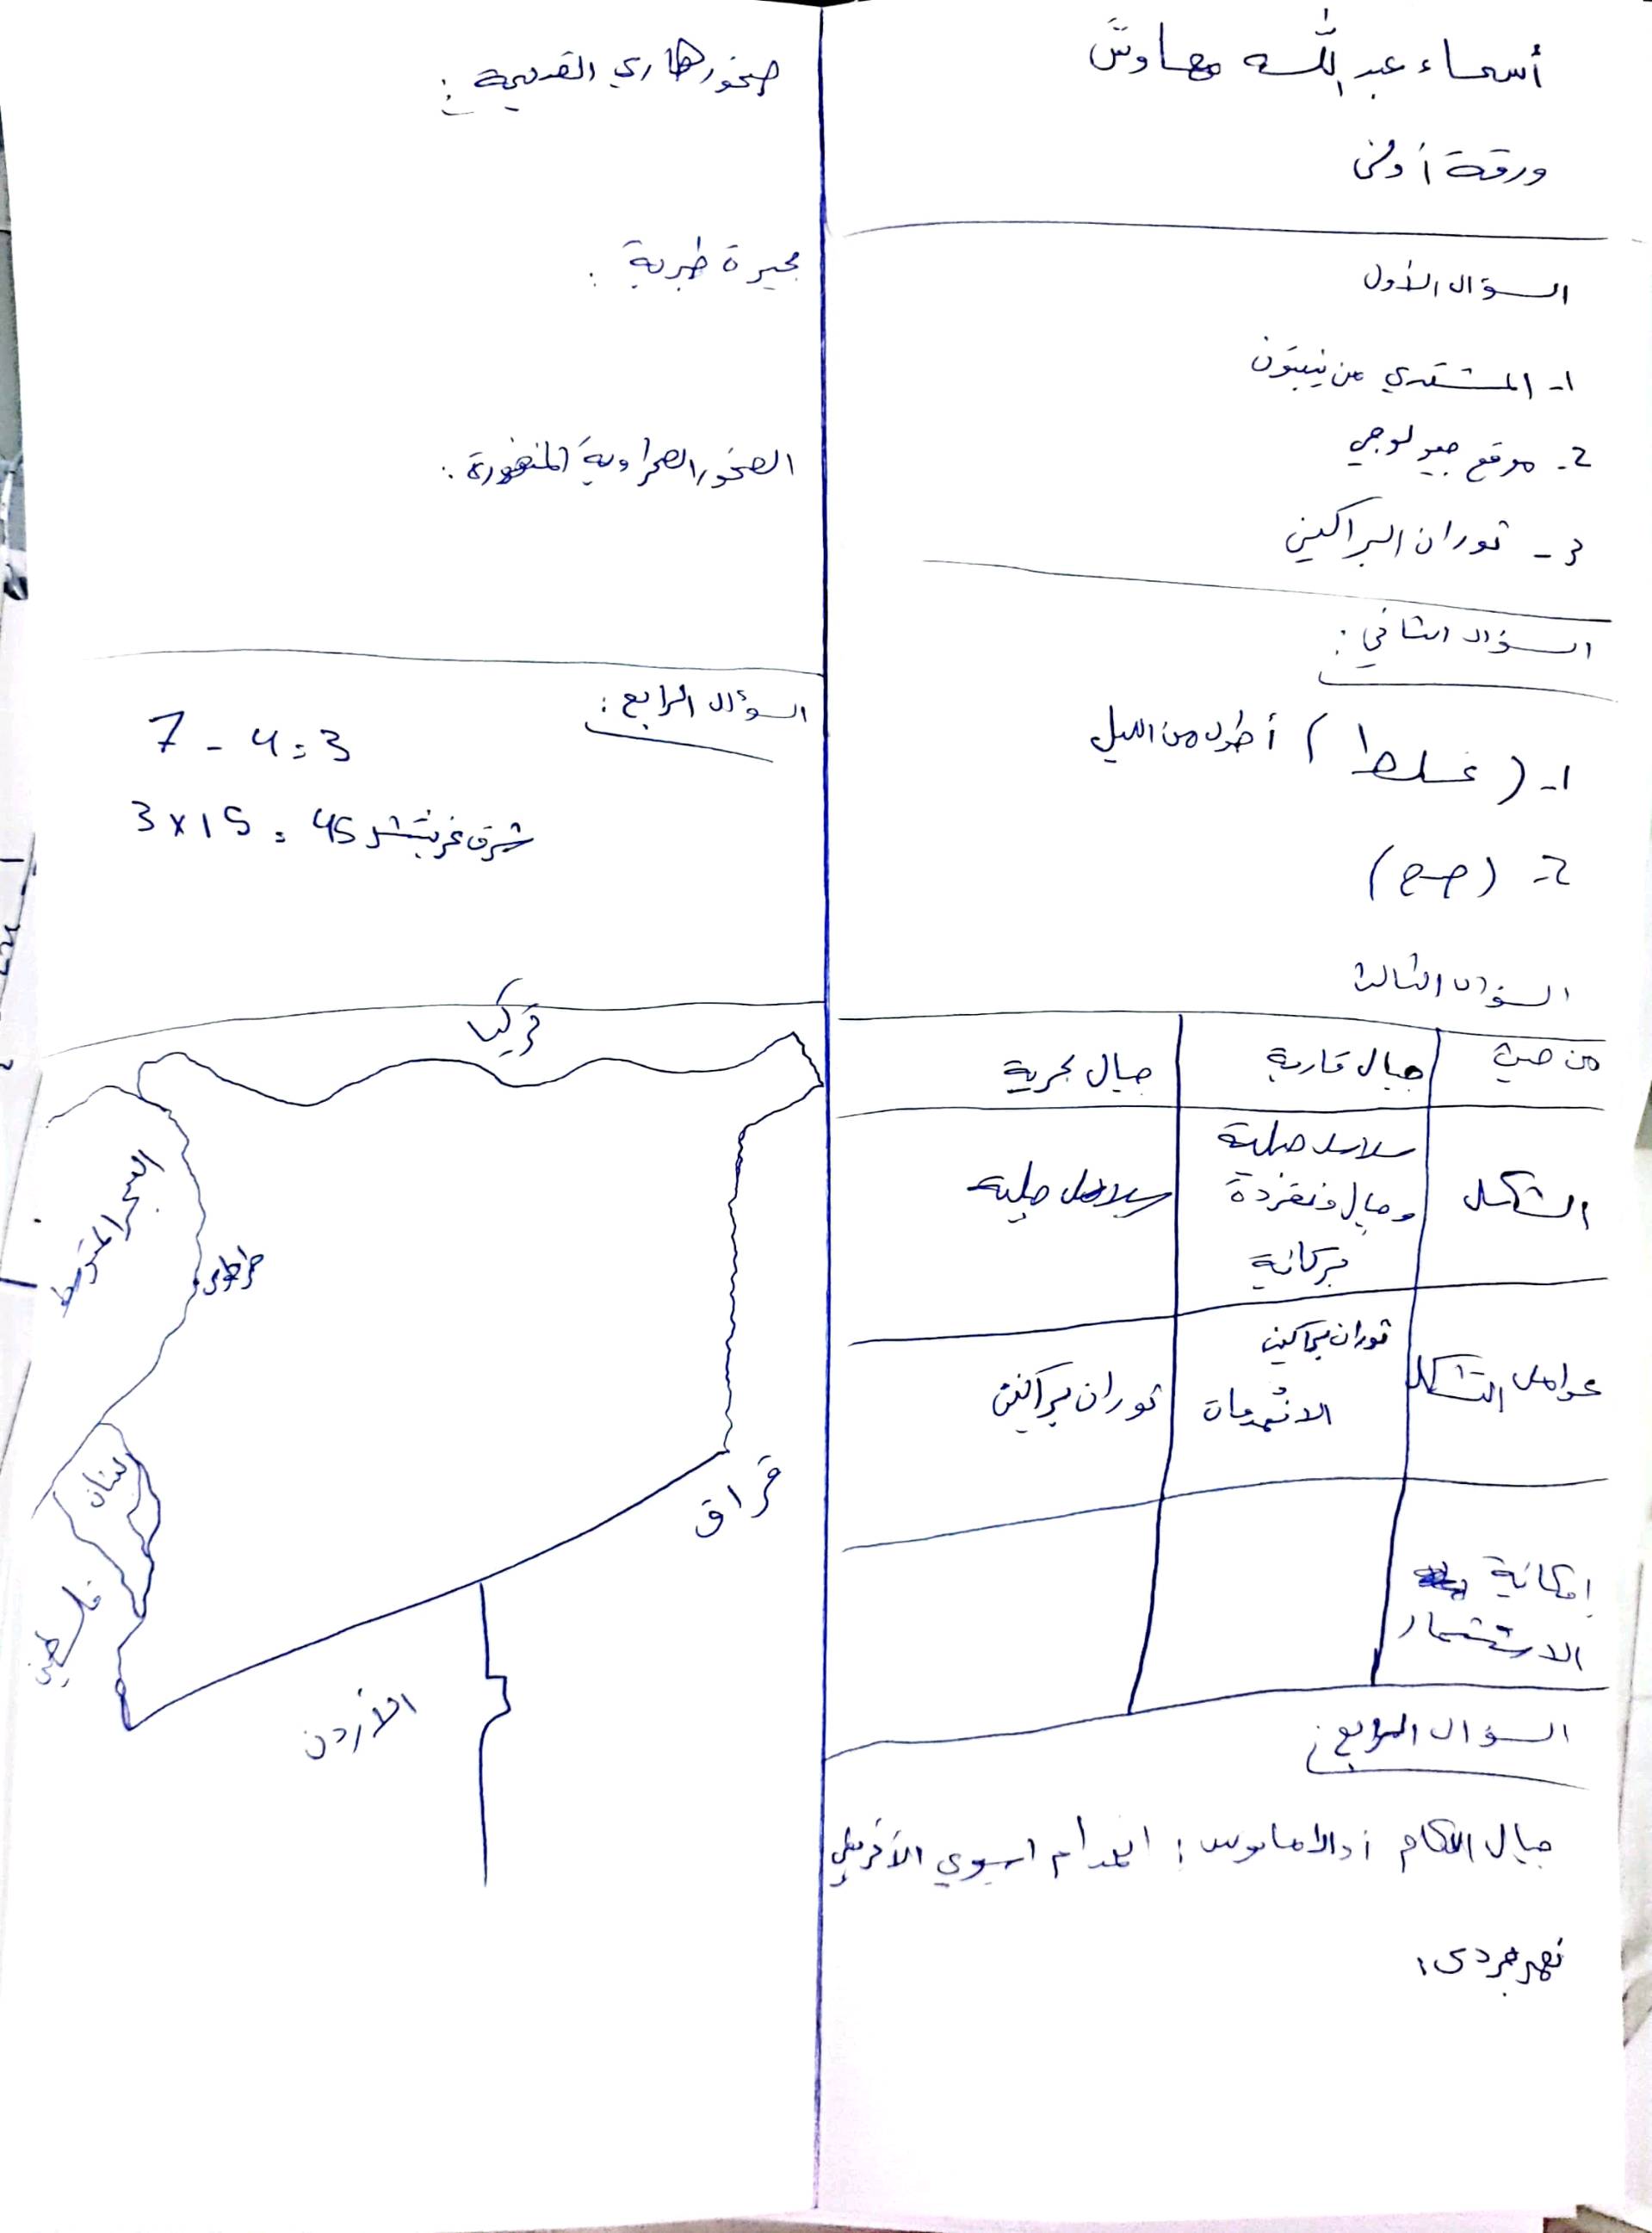 أسماء عبد الله مهاوش
ورقة أولى
السؤال الأول
1- المشتري عن نيبتون
2- موقع جيولوجي
3- ثوران البراكين
السؤال الثاني :
1- ( غلط ) أطول من الليل
2- (صح)
السؤال الثالث
من حيث جبال قارية جبال بحرية
الشكل سلاسل جبلية وجبال منفردة بركانية سلاسل جبلية
عوامل التشكل ثوران براكين الانهدامات ثوران براكين
إمكانية الاستثمار
السؤال الرابع :
جبال اللكام أو الأمانوس : انهدام اسيوي الأفريقي
نهر بردى :
صخور هاري القديمة :
بحيرة طبرية :
الصخور الصحراوية :
السؤال الرابع :
7 - 4 = 3
3 x 15 = 45 شرق غرينتش
تركيا
البحر المتوسط
لبنان
فلسطين
الأردن